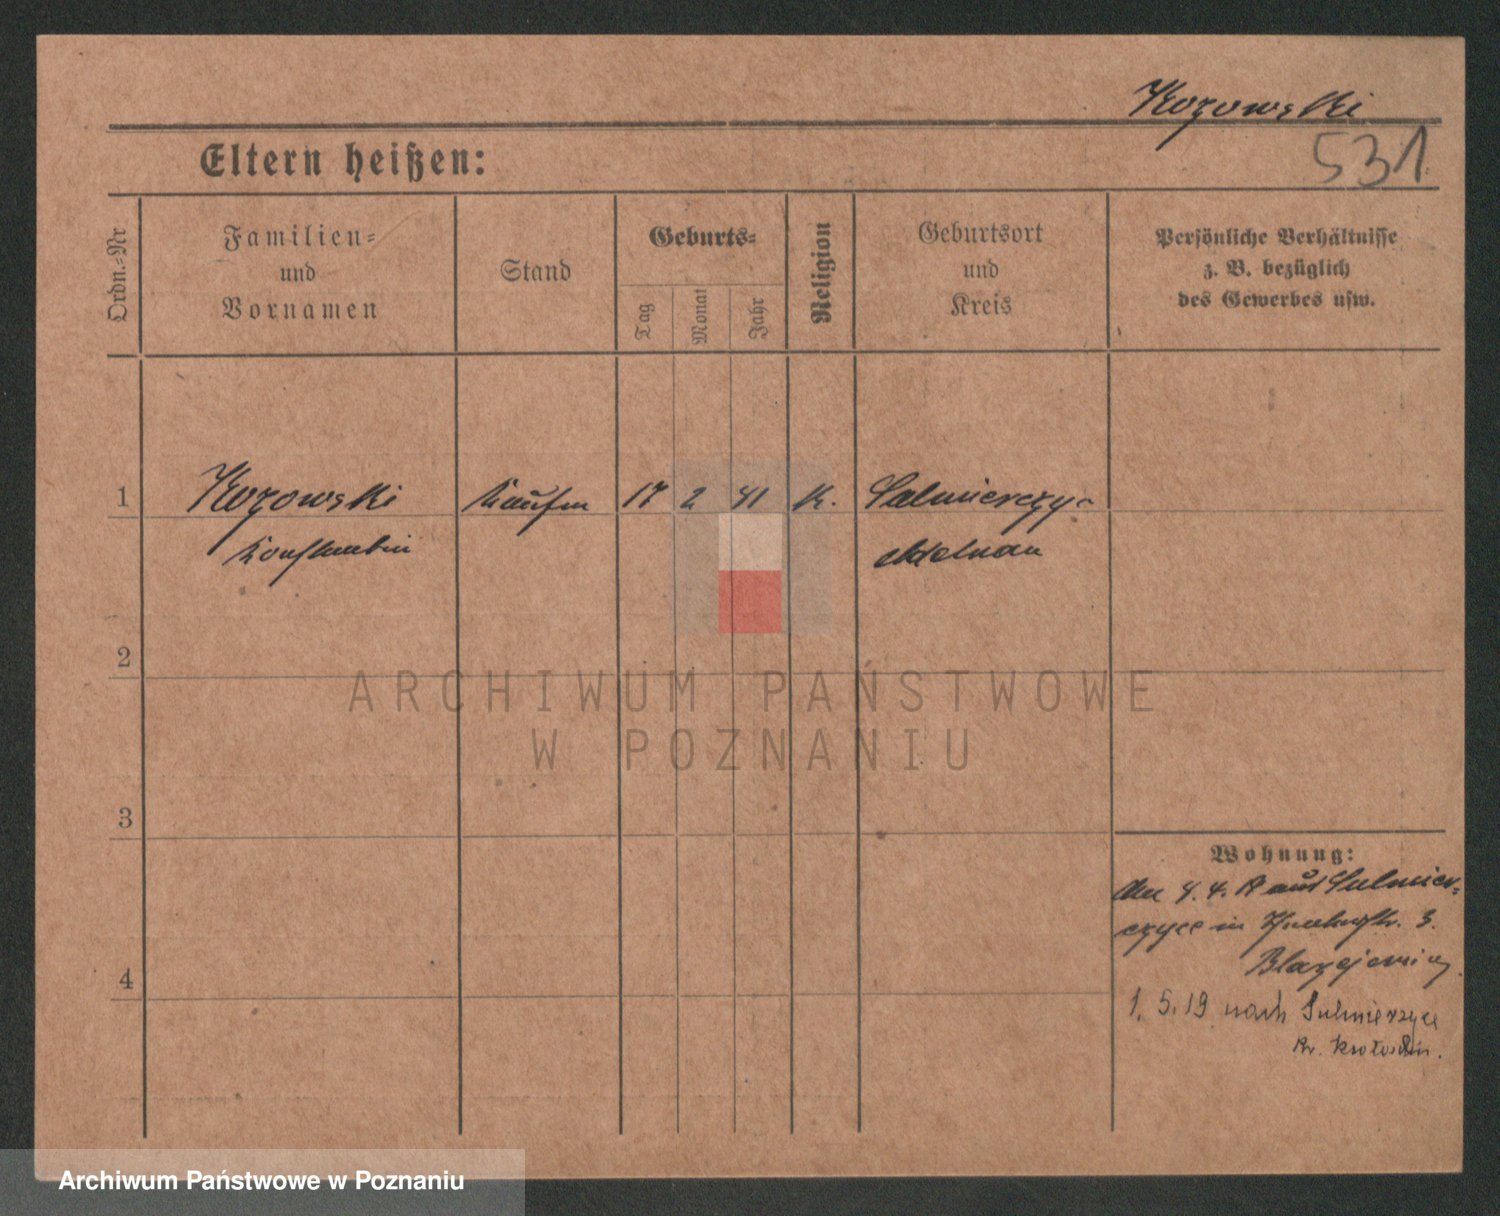 Kozowski
531
Eltern heißen:
Ordn.-Nr
Familien-
und
Vornamen
Stand
Geburts-
Tag
Monat
Jahr
Religion
Geburtsort
und
Kreis
Persönliche Verhältnisse
z. B. bezüglich
des Gewerbes usw.
1
Kozowski
Kaufm
17
2
K.
Sulmierzyce
Konstantin
Adelnau
2
3
4
Wohnung:
aus Sulmier-
zyce in 3.
1. 5. 19 nach Sulmierzyce
Kr. Krotoschin.
ARCHIWUM PAŃSTWOWE
W POZNANIU
Archiwum Państwowe w Poznaniu